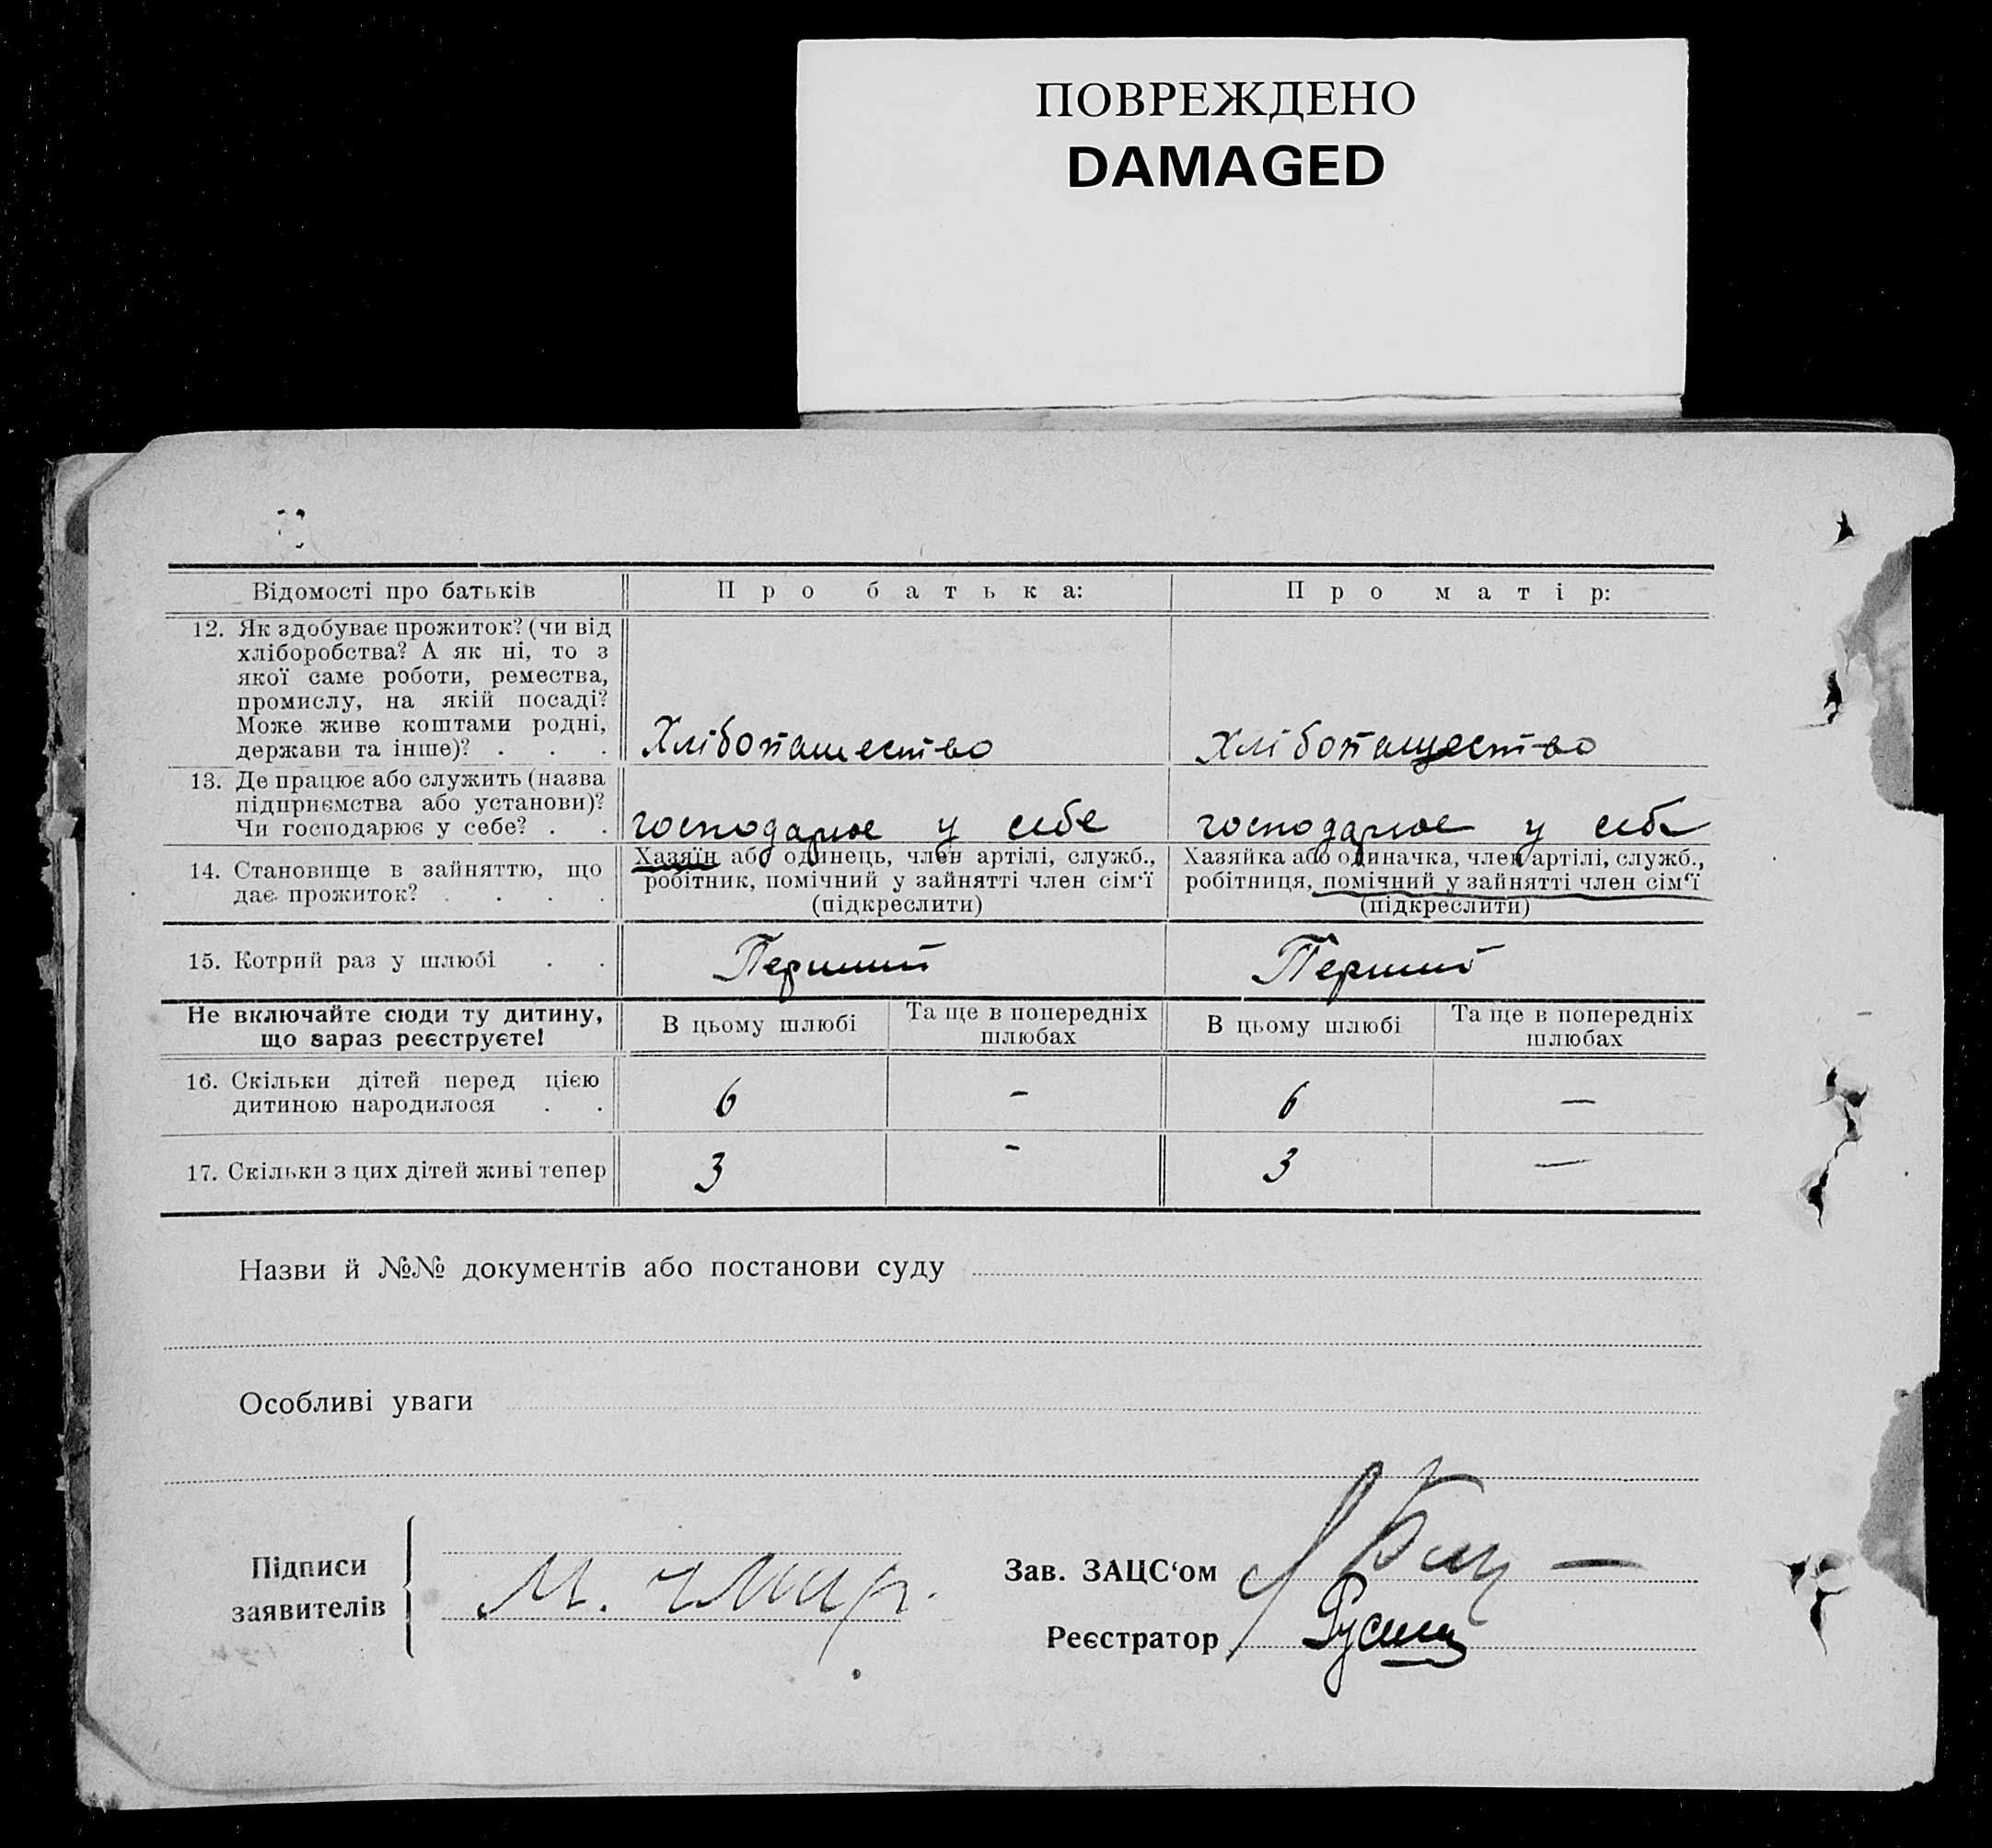 ПОВРЕЖДЕНО
DAMAGED
Відомості про батьків
Про батька:
Про матір:
12. Як здобуває прожиток? (чи від
хліборобства? А як ні, то з
якої саме роботи, ремества,
промислу, на якій посаді?
Може живе коштами родні,
держави та інше)? . . .
Хлібопашество
Хлібопащество
13. Де працює або служить (назва
підприємства або установи)?
Чи господарює у себе? . .
господарює у себе
господарює у себе
14. Становище в зайняттю, що
дає прожиток? . . . .
Хазяїн або одинець, член артілі, служб.,
робітник, помічний у зайнятті член сім'ї
(підкреслити)
Хазяйка або одиначка, член артілі, служб.,
робітниця, помічний у зайнятті член сім'ї
(підкреслити)
15. Котрий раз у шлюбі . .
Перший
Перший
Не включайте сюди ту дитину,
що зараз реєструєте!
В цьому шлюбі
Та ще в попередніх
шлюбах
В цьому шлюбі
Та ще в попередніх
шлюбах
16. Скільки дітей перед цією
дитиною народилося . .
6
-
6
—
17. Скільки з цих дітей живі тепер
3
-
3
—
Назви й №№ документів або постанови суду
Особливі уваги
Підписи
заявителів
М.
Зав. ЗАЦС'ом
Реєстратор